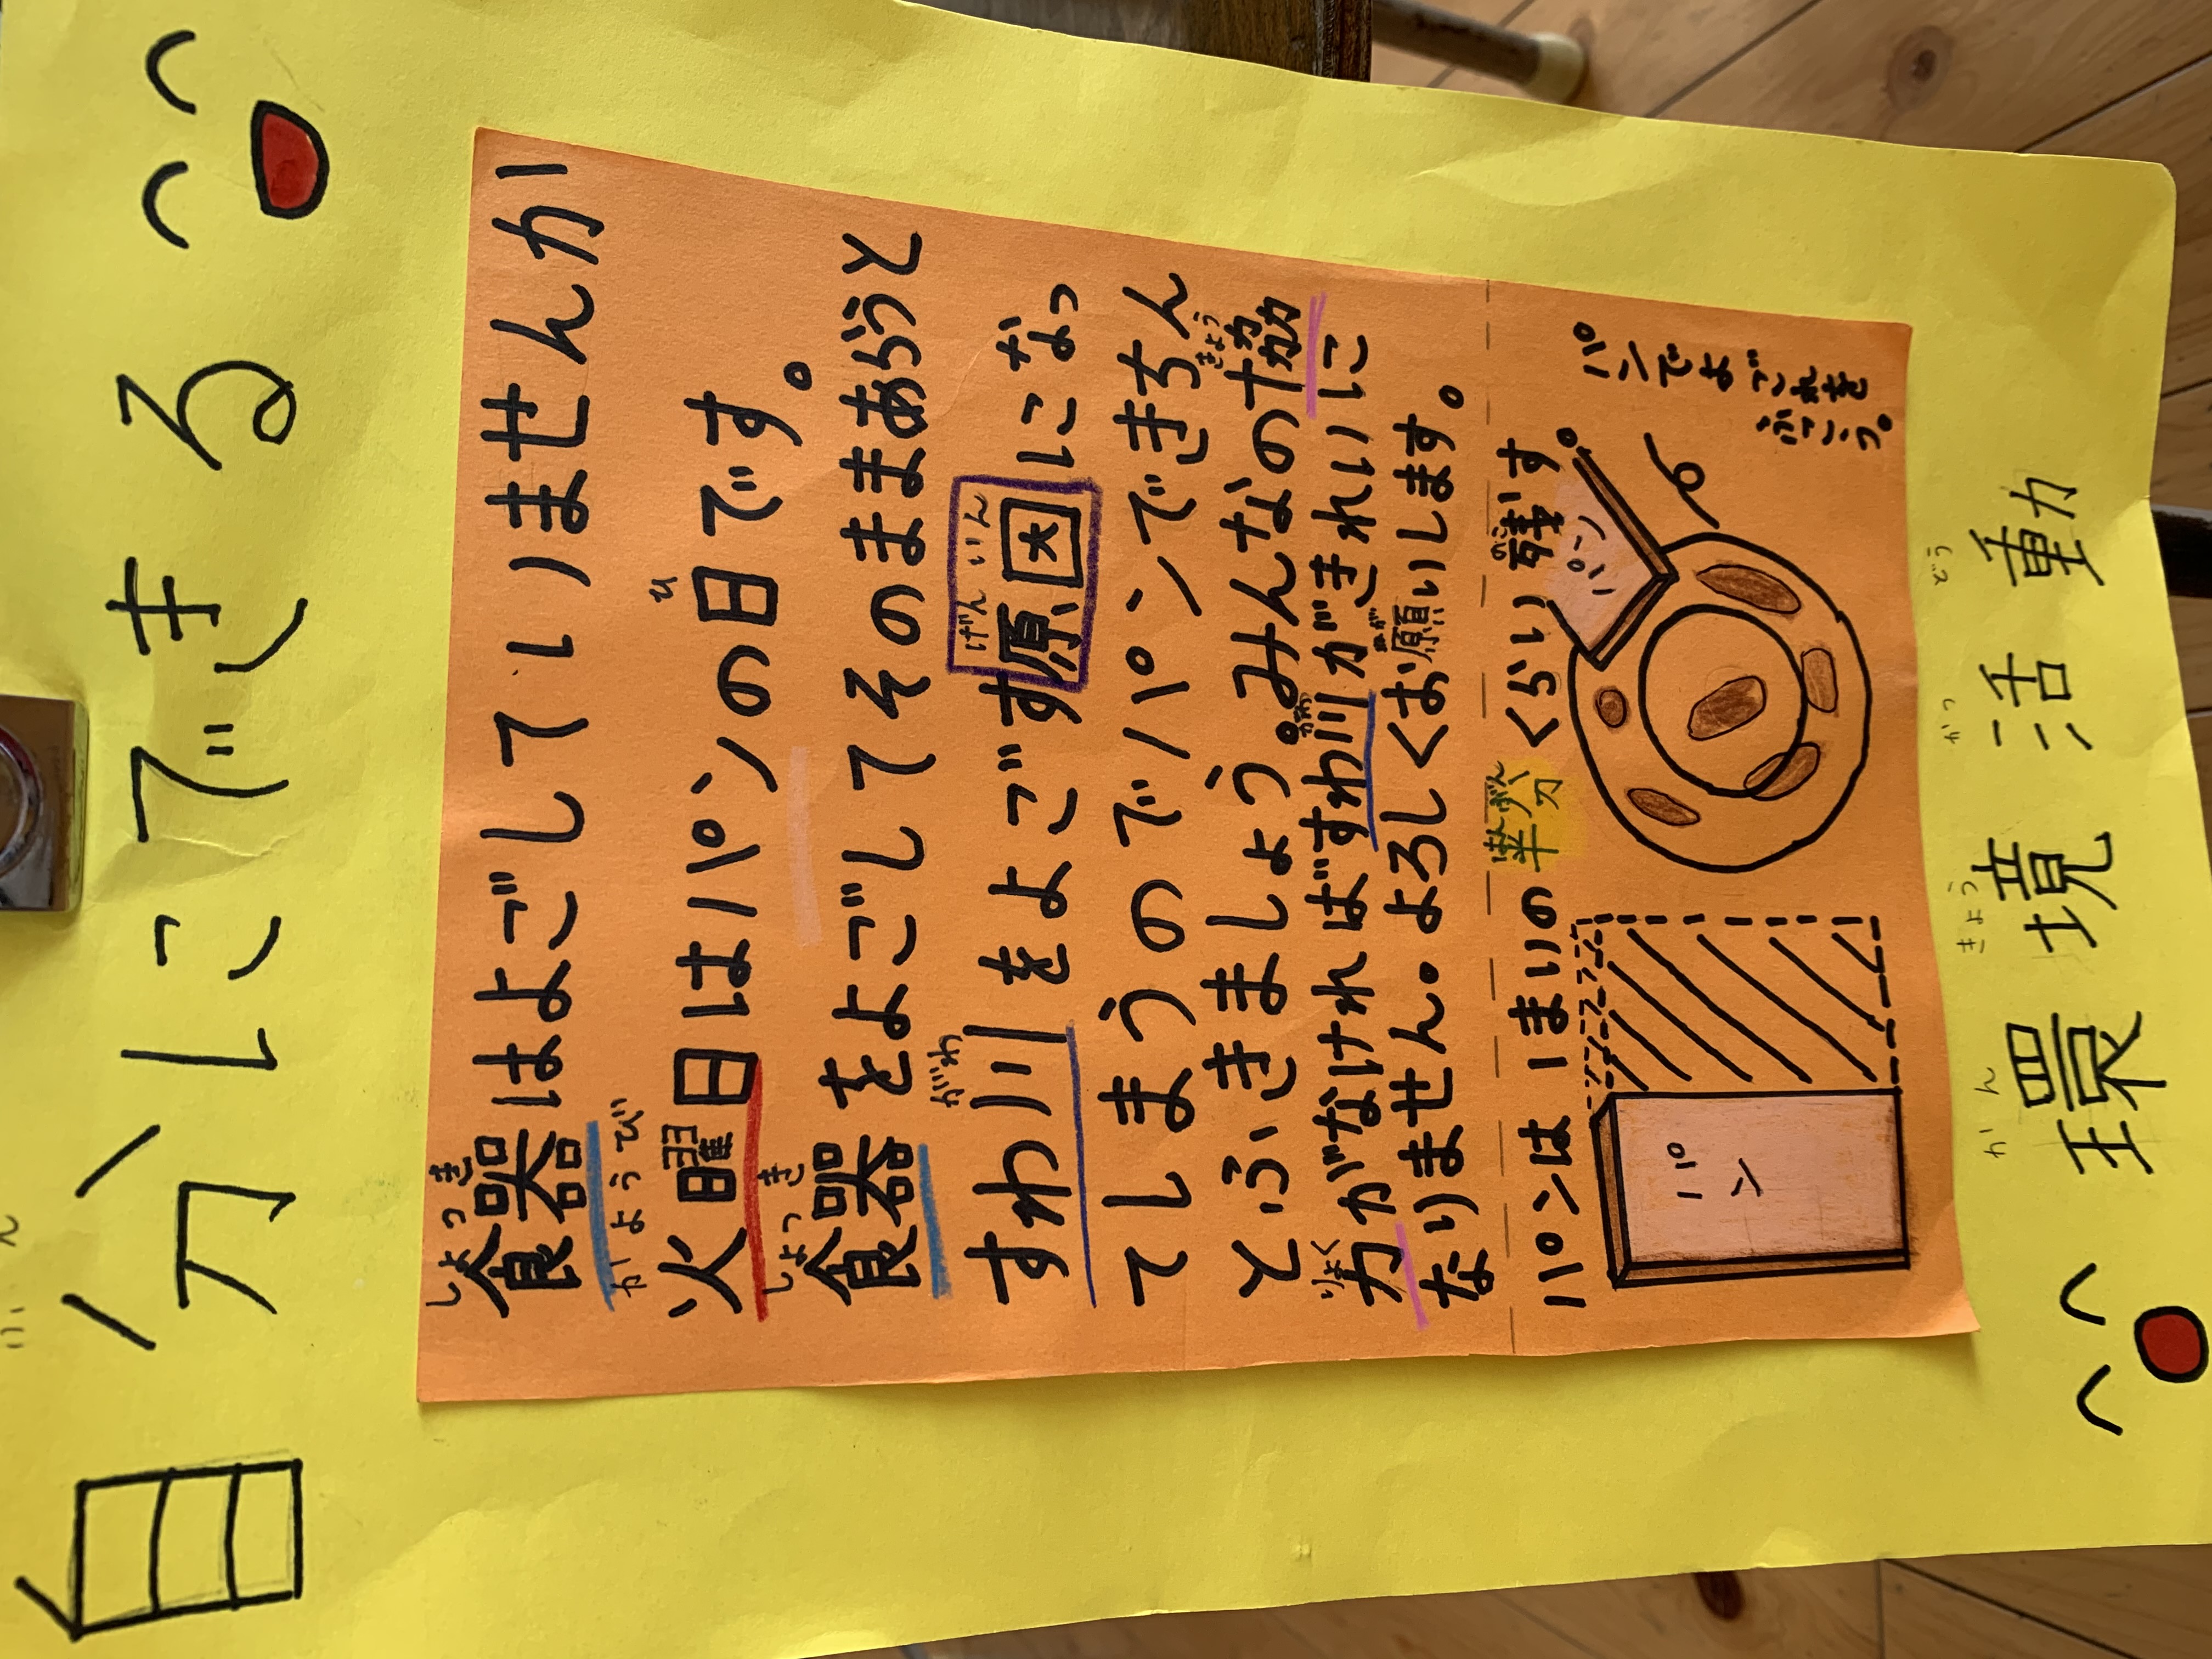 自分にできる
食器はよごしていませんか
火曜日はパンの日です。
食器をよごしてそのままあらうと
すわ川をよごす原因になっ
てしまうのでパンできちん
とふきましょう。みんなの協
力がなければすわ川がきれいに
なりません。よろしくお願いします。
パンは1まいの半分くらい残す。
パン
パン
パンでよごれを
ふこう。
環境活動